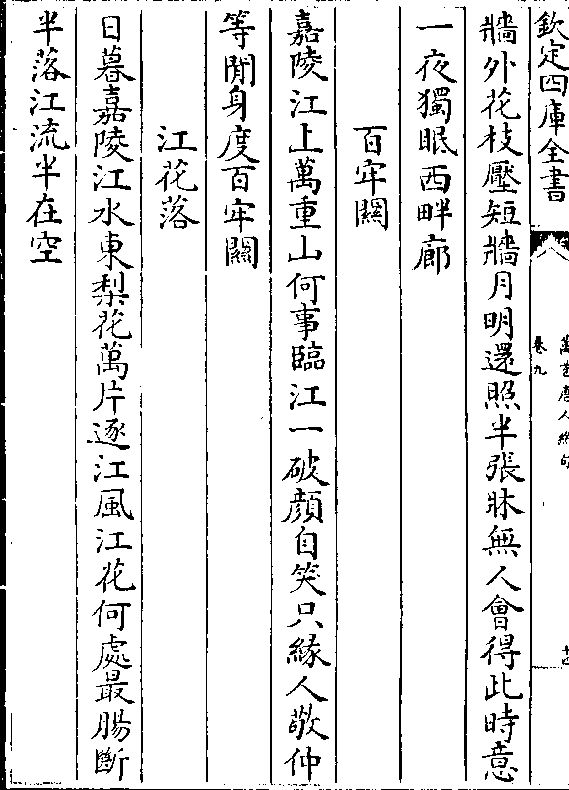 欽定四庫全書
萬首唐人絶句
卷九
牆外花枝壓短牆月明還照半張牀無人會得此時意
一夜獨眠西畔廊
百牢關
嘉陵江上萬重山何事臨江一破顔自笑只緣人敬仲
等閒身度百牢關
江花落
日暮嘉陵江水東梨花萬片逐江風江花何處最腸斷
半落江流半在空